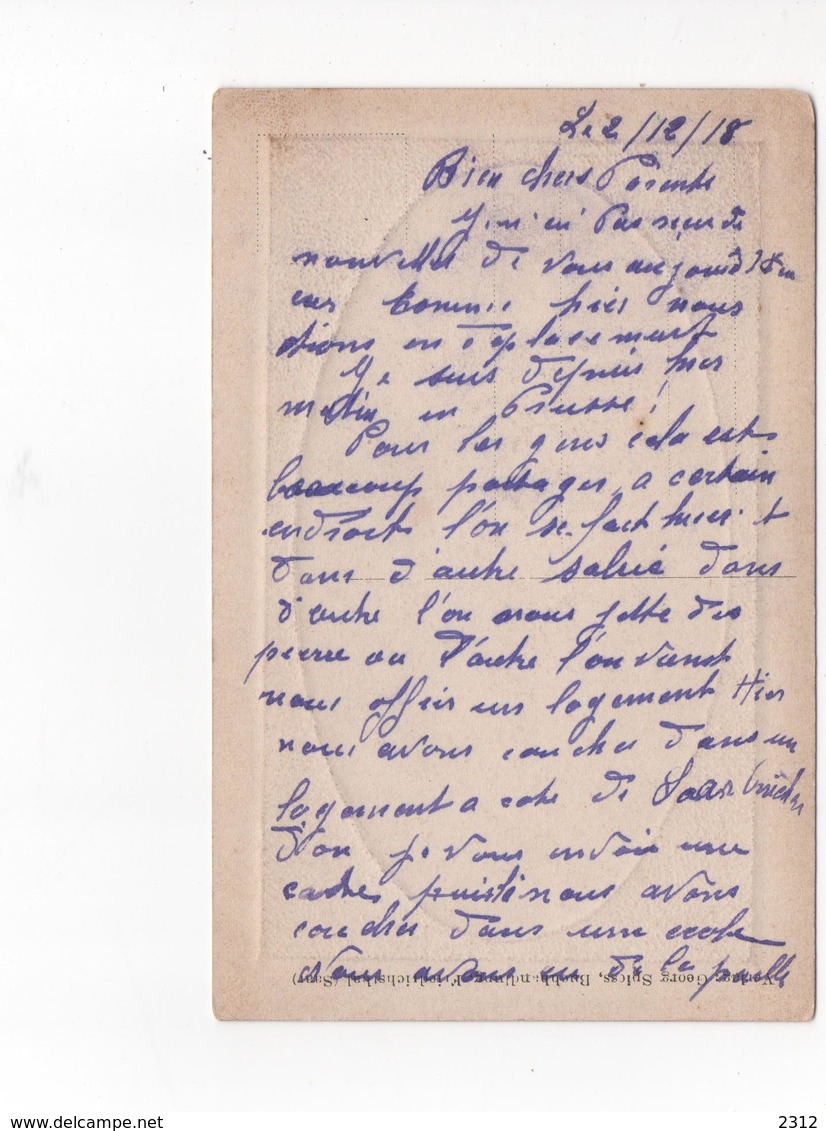 Le 2/12/18
Bien chers Parents
Je n'ai Pas reçu de
nouvelles de vous aujourd'hui
car comme hier nous
étions en déplacement
Je suis depuis hier
matin en Prusse!
Pour les gens cela est
beaucoup partager, a certain
endroit l'on se fait
dans d'autre dans
d'autre l'on nous jette des
pierre ou d'autre l'on vient
nous offrir un logement Hier
nous avons coucher dans un
logement a cote de Saarbrücken
d'on je vous envoie une
cartes, nous avons
coucher dans une ecole
Nous avons eu de la paille
Verlag: Georg Spiess, Buchhandlung, Friedrichsthal (Saar)
2312